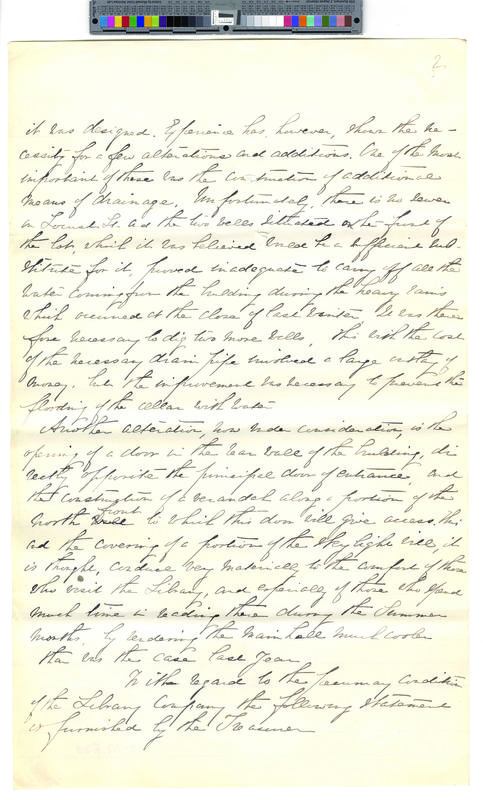 2.
it was designed. Experience has, however, shown the ne-
cessity for a few alterations and additions. One of the most
important of these was the construction of additional
means of drainage. Unfortunately, there is no sewer
on Locust St. and the two wells situated on the front of
the lot, which it was believed would be a sufficient sub-
stitute for it, proved inadequate to carry off all the
water coming from the building during the heavy rains
which occurred at the close of last winter. It was there
fore necessary to dig two more wells. This with the cost
of the necessary drain pipe involved a large outlay of
money, but the improvement was necessary to prevent the
flooding of the cellar with water
Another alteration, now under consideration, is the
opening of a door in the rear wall of the building, di
rectly opposite the principal door of entrance, and
the construction of a verandah along a portion of the
front
North to which this door will give access. This
and the covering of a portion of the skylight will, it
is thought, conduce very materially to the comfort of those
who visit the Library, and especially of those who spend
much time in reading there during the Summer
months, by rendering the main hall much cooler
than was the case last year.
With regard to the pecuniary condition
of the Library Company the following statement
is furnished by the Treasurer